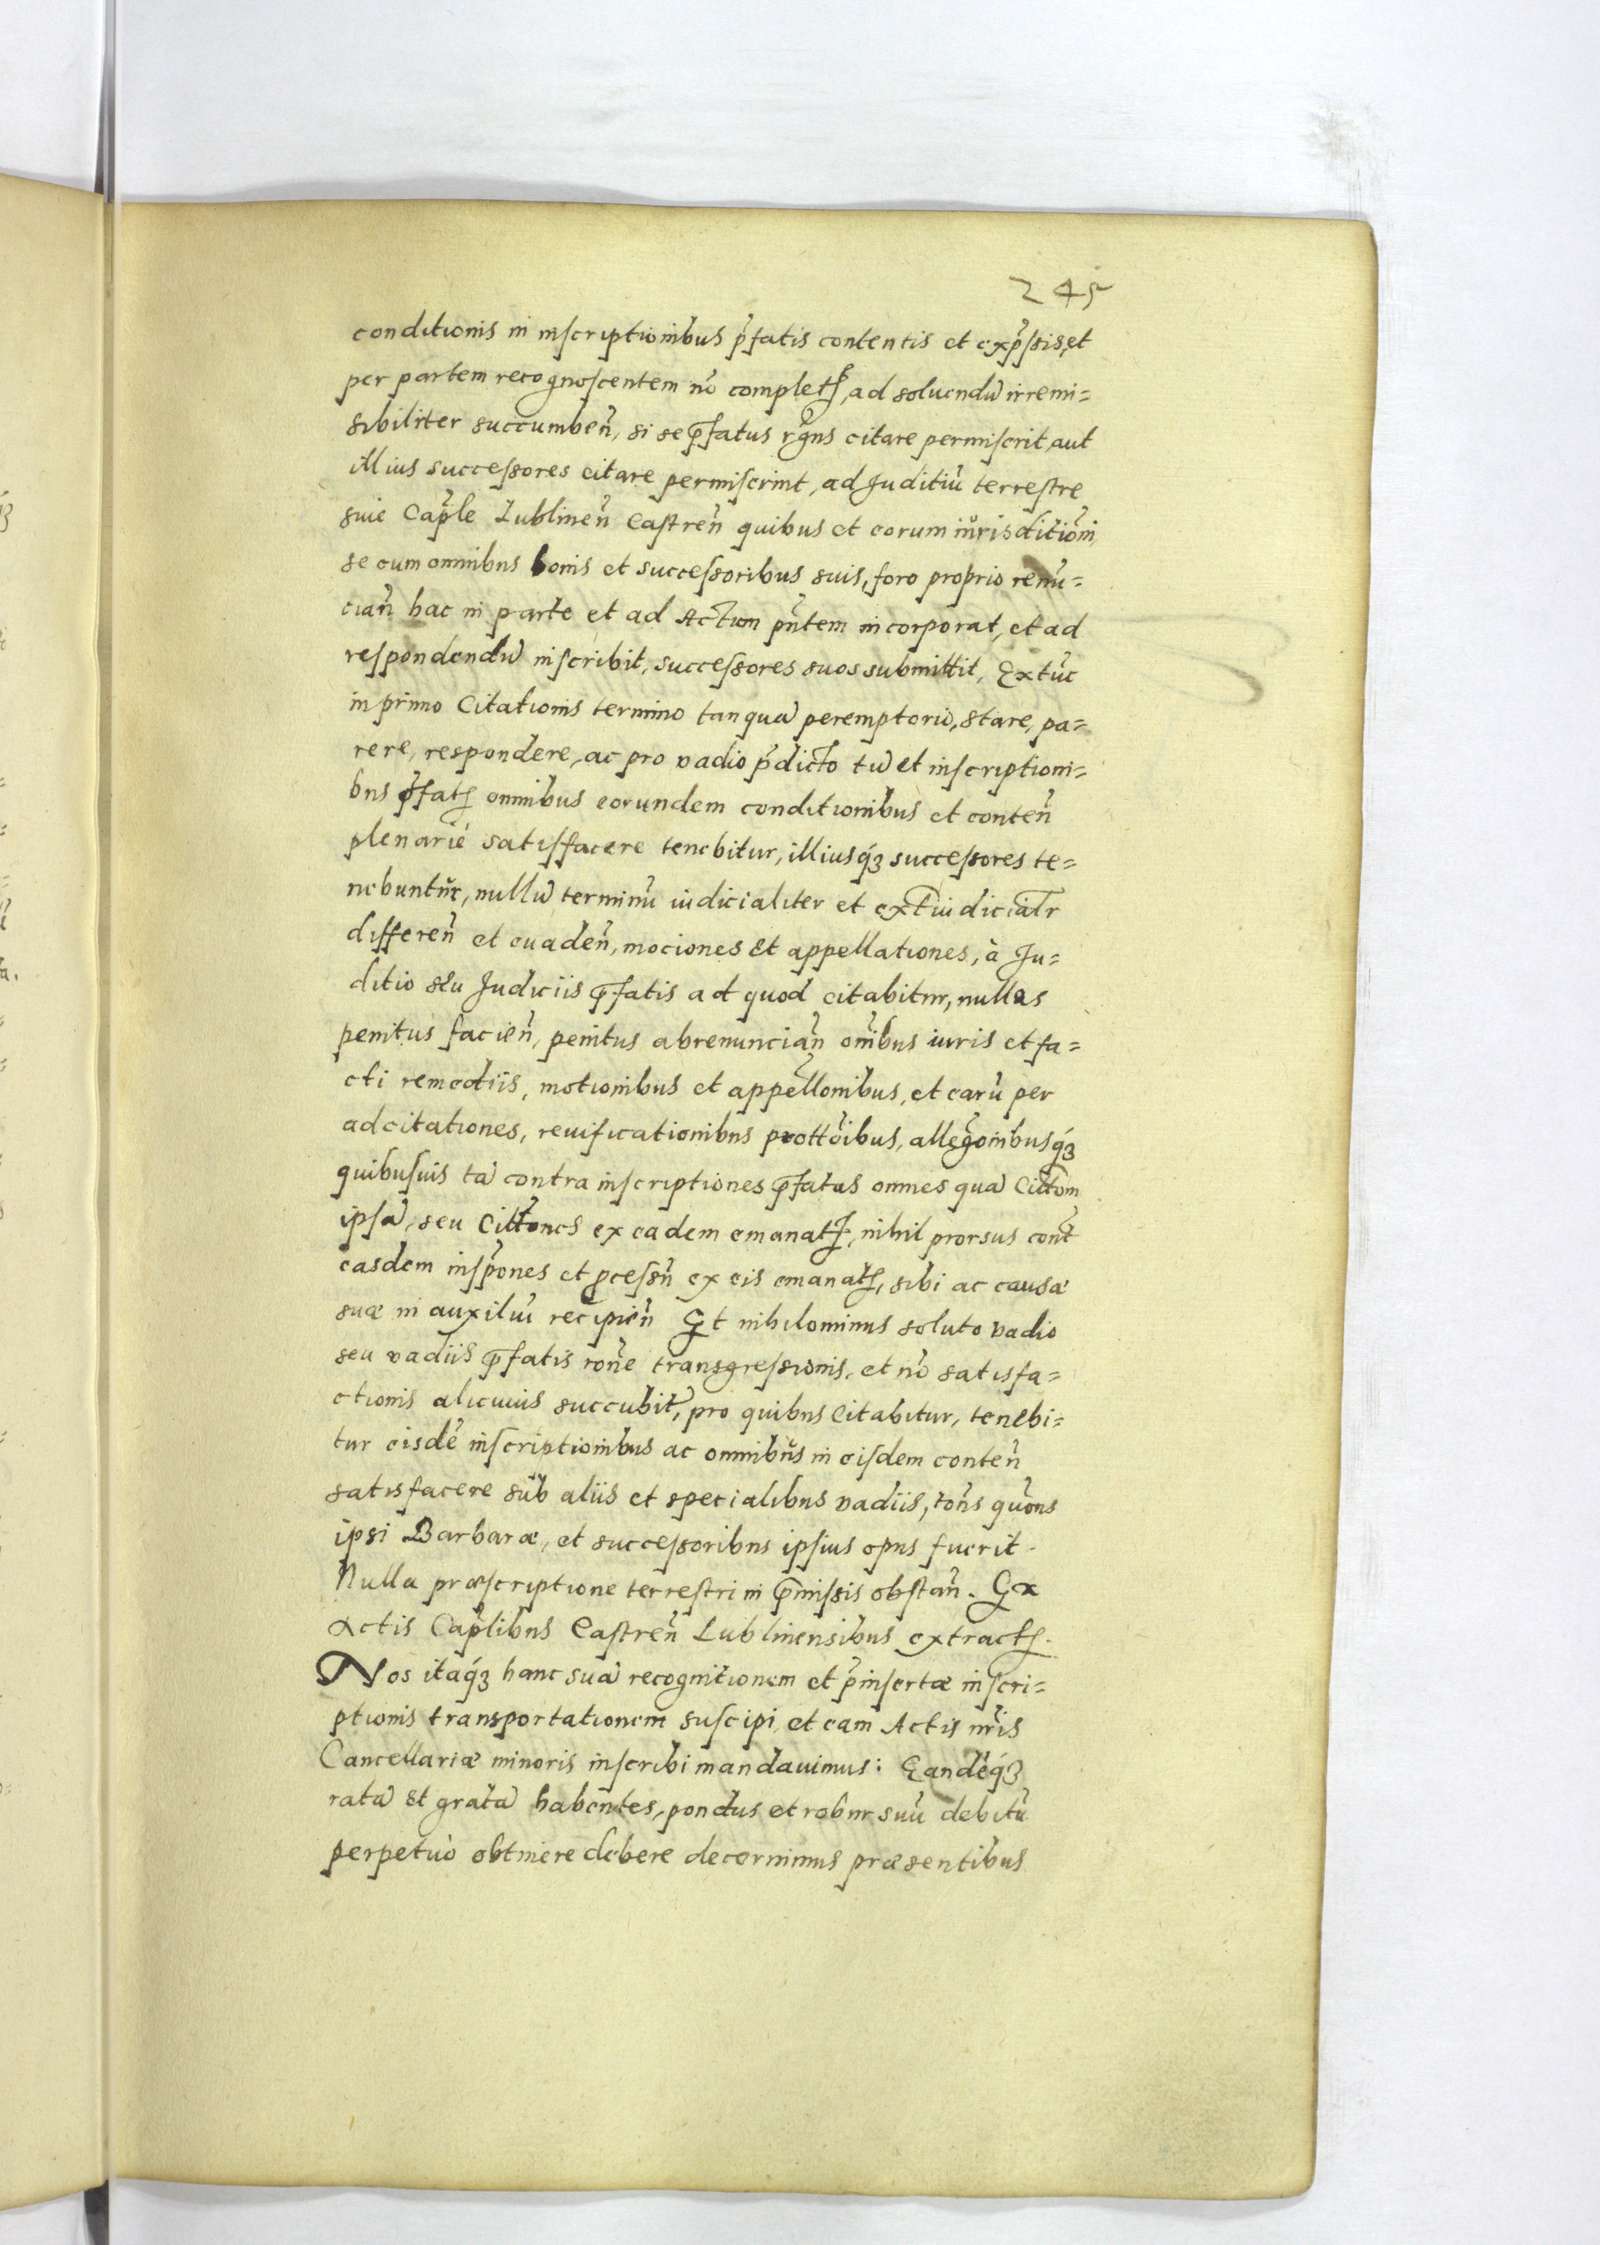 245
conditionis in inscriptionibus p̃fatis contentis et exp̃ssis, et
per partem recognoscentem nõ complet, ad soluendũ irremi=
sibiliter succumben̄, si se p̃fatus rg̃ns citare permiserit, aut
illius successores citare permiserint, ad Juditiũ terrestre
siue Cap̃le Lublinen̄ Castren̄ quibus et eorum iurisditiõni
se cum omnibus bonis et successoribus suis, foro proprio renũ=
cian̄ hac in parte et ad Actum pñtem incorporat, et ad
respondendũ inscribit, successores suos submittit, Extũc
in primo Citationis termino tanquã peremptoriò, stare, pa=
rere, respondere, ac pro vadio p̃dicto tũ et inscriptioni=
bus p̃fat omnibus eorundem conditionibus et conten̄
plenariè satisfacere tenebitur, illiusq́3 successores te=
nebuntur, nullũ terminũ iudicialiter et extiudicialr
differen̄ et euaden̄, mociones et appellationes, à Ju=
ditio seu Judiciis p̃fatis ad quod citabitur, nullas
penitus facien̄, penitus abrenuncian̄ oñibus iuris et fa=
cti remediis, motionibus et appellonibus, et earũ per
adcitationes, reuificationibus prottõibus, alleg̃onibusq́3
quibusuis tã contra inscriptiones p̃fatas omnes quã Cittom
ipsã, seu Cittones ex eadem emanat, nihil prorsus cont̃
easdem insp̃ones et pcessũ ex eis emanat, sibi ac causæ
suæ in auxiliũ recipien̄ Et nihilominus soluto vadio
seu vadiis p̃fatis rõne transgressionis, et nõ satisfa=
ctionis alicuius succubit, pro quibus Citabitur, tenebi=
tur eisdẽ inscriptionibus ac omnibus in eisdem conten̄
satisfacere sub aliis et specialibus vadiis, tõns quõns
ipsi Barbaræ, et successoribus ipsius opus fuerit.
Nulla præscriptione terrestri in p̃missis obstan̄. Ex
Actis Cap̃libus Castren̄ Lublinensibus extract.
Nos itaq́3 hanc suã recognitionem et p̃insertæ inscri=
ptionis transportationem suscipi, et eam Actis nr̃is
Cancellariæ minoris inscribi mandauimus: Eandẽq́3
ratã et gratã habentes, pondus et robur suũ debitũ
perpetuò obtinere debere decernimus præsentibus